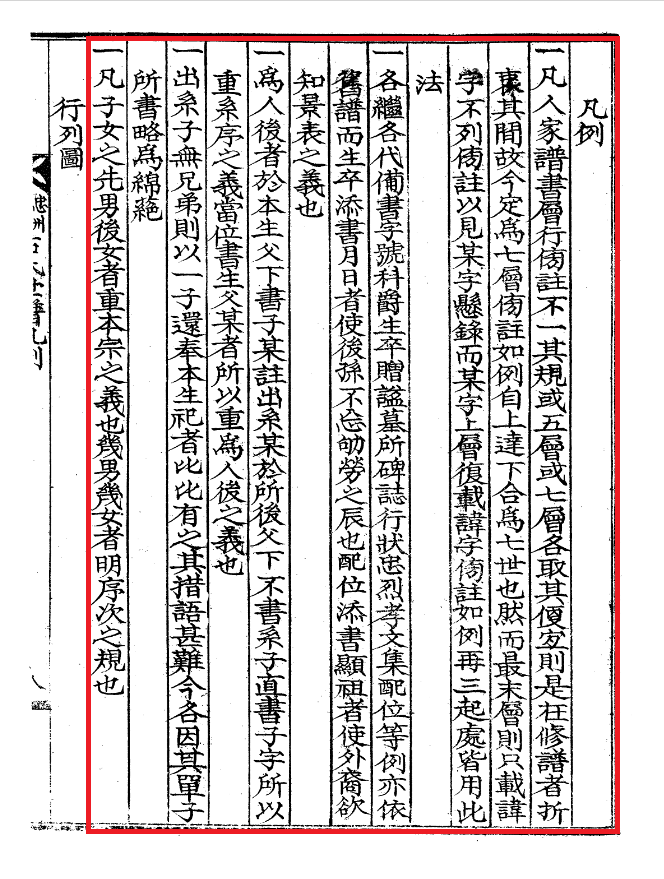 凡例
一凡人家譜書層行傍註不一其規或五層或七層各取其便宜則是在修譜者折
衷其間故今定爲七層傍註如例自上達下合爲七世也然而最末層則只載諱
字不列傍註以見某字懸錄而某字上層復載諱字傍註如例再三起處皆用此
法
一各繼各代備書字號科爵生卒贈諡墓所碑誌行狀忠烈孝文集配位等例亦依
舊譜而生卒添書月日者使後孫不忘劬勞之辰也配位添書顯祖者使外裔欲
知景表之義也
一爲人後者於本生父下書子某註出系某於所後父下不書系子直書子字所以
重系序之義當位書生父某者所以重爲人後之義也
一出系子無兄弟則以一子還奉本生祀者比比有之其措語甚難今各因其單子
所書略爲綿蕝
一凡子女之先男後女者重本宗之義也幾男幾女者明序次之規也
行列圖
忠州石氏世譜凡例
八